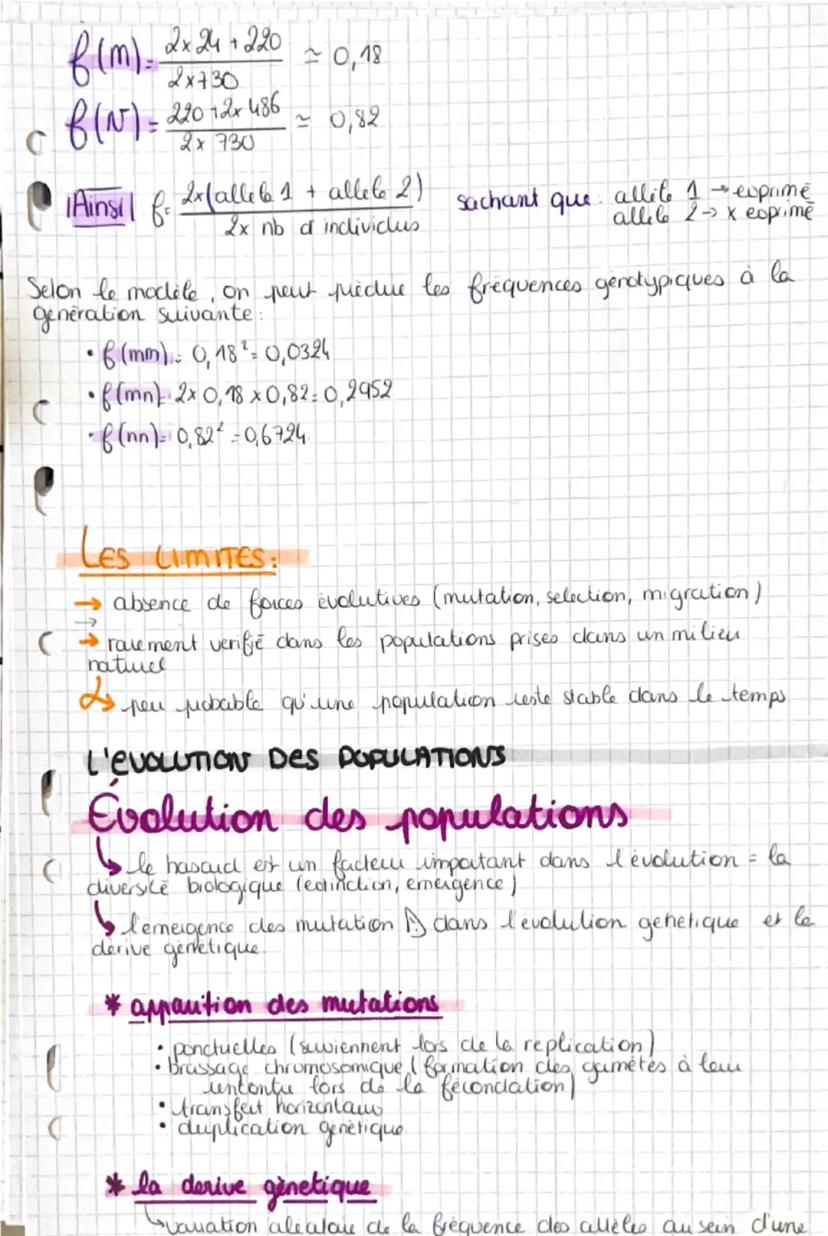 f(m) = (2x24 + 220) / (2x730) ≃ 0,18
f(N) = (220 + 2x486) / (2x 730) ≃ 0,82
|Ainsi| f= 2x(allèle 1 + allèle 2) / 2x nb d'individus sachant que: allèle 1 → exprimé
allèle 2 → x exprimé
Selon le modèle, on peut prédire les fréquences génotypiques à la
génération suivante:
• f(mm) = 0,18² = 0,0324
• f(mn) = 2x 0,18 x 0,82 = 0,2952
• f(nn) = 0,82² = 0,6724
LES LIMITES:
→ absence de forces évolutives (mutation, selection, migration)
→
→ rarement verifié dans les populations prises dans un milieu
naturel
↳ peu probable qu'une population reste stable dans le temps
L'ÉVOLUTION DES POPULATIONS
Évolution des populations
↳ le hasard est un facteur important dans l'évolution = la
diversité biologique (extinction, emergence)
↳ l'emergence des mutation dans l'evolution genetique et la
dérive génétique.
* apparition des mutations
• ponctuelles (surviennent lors de la replication)
• brassage chromosomique (formation des gamètes à leur
rencontre lors de la fécondation)
• transfert horizontaux
• duplication génétique
* la derive génetique
↳ variation aléatoire de la fréquence des allèles au sein d'une